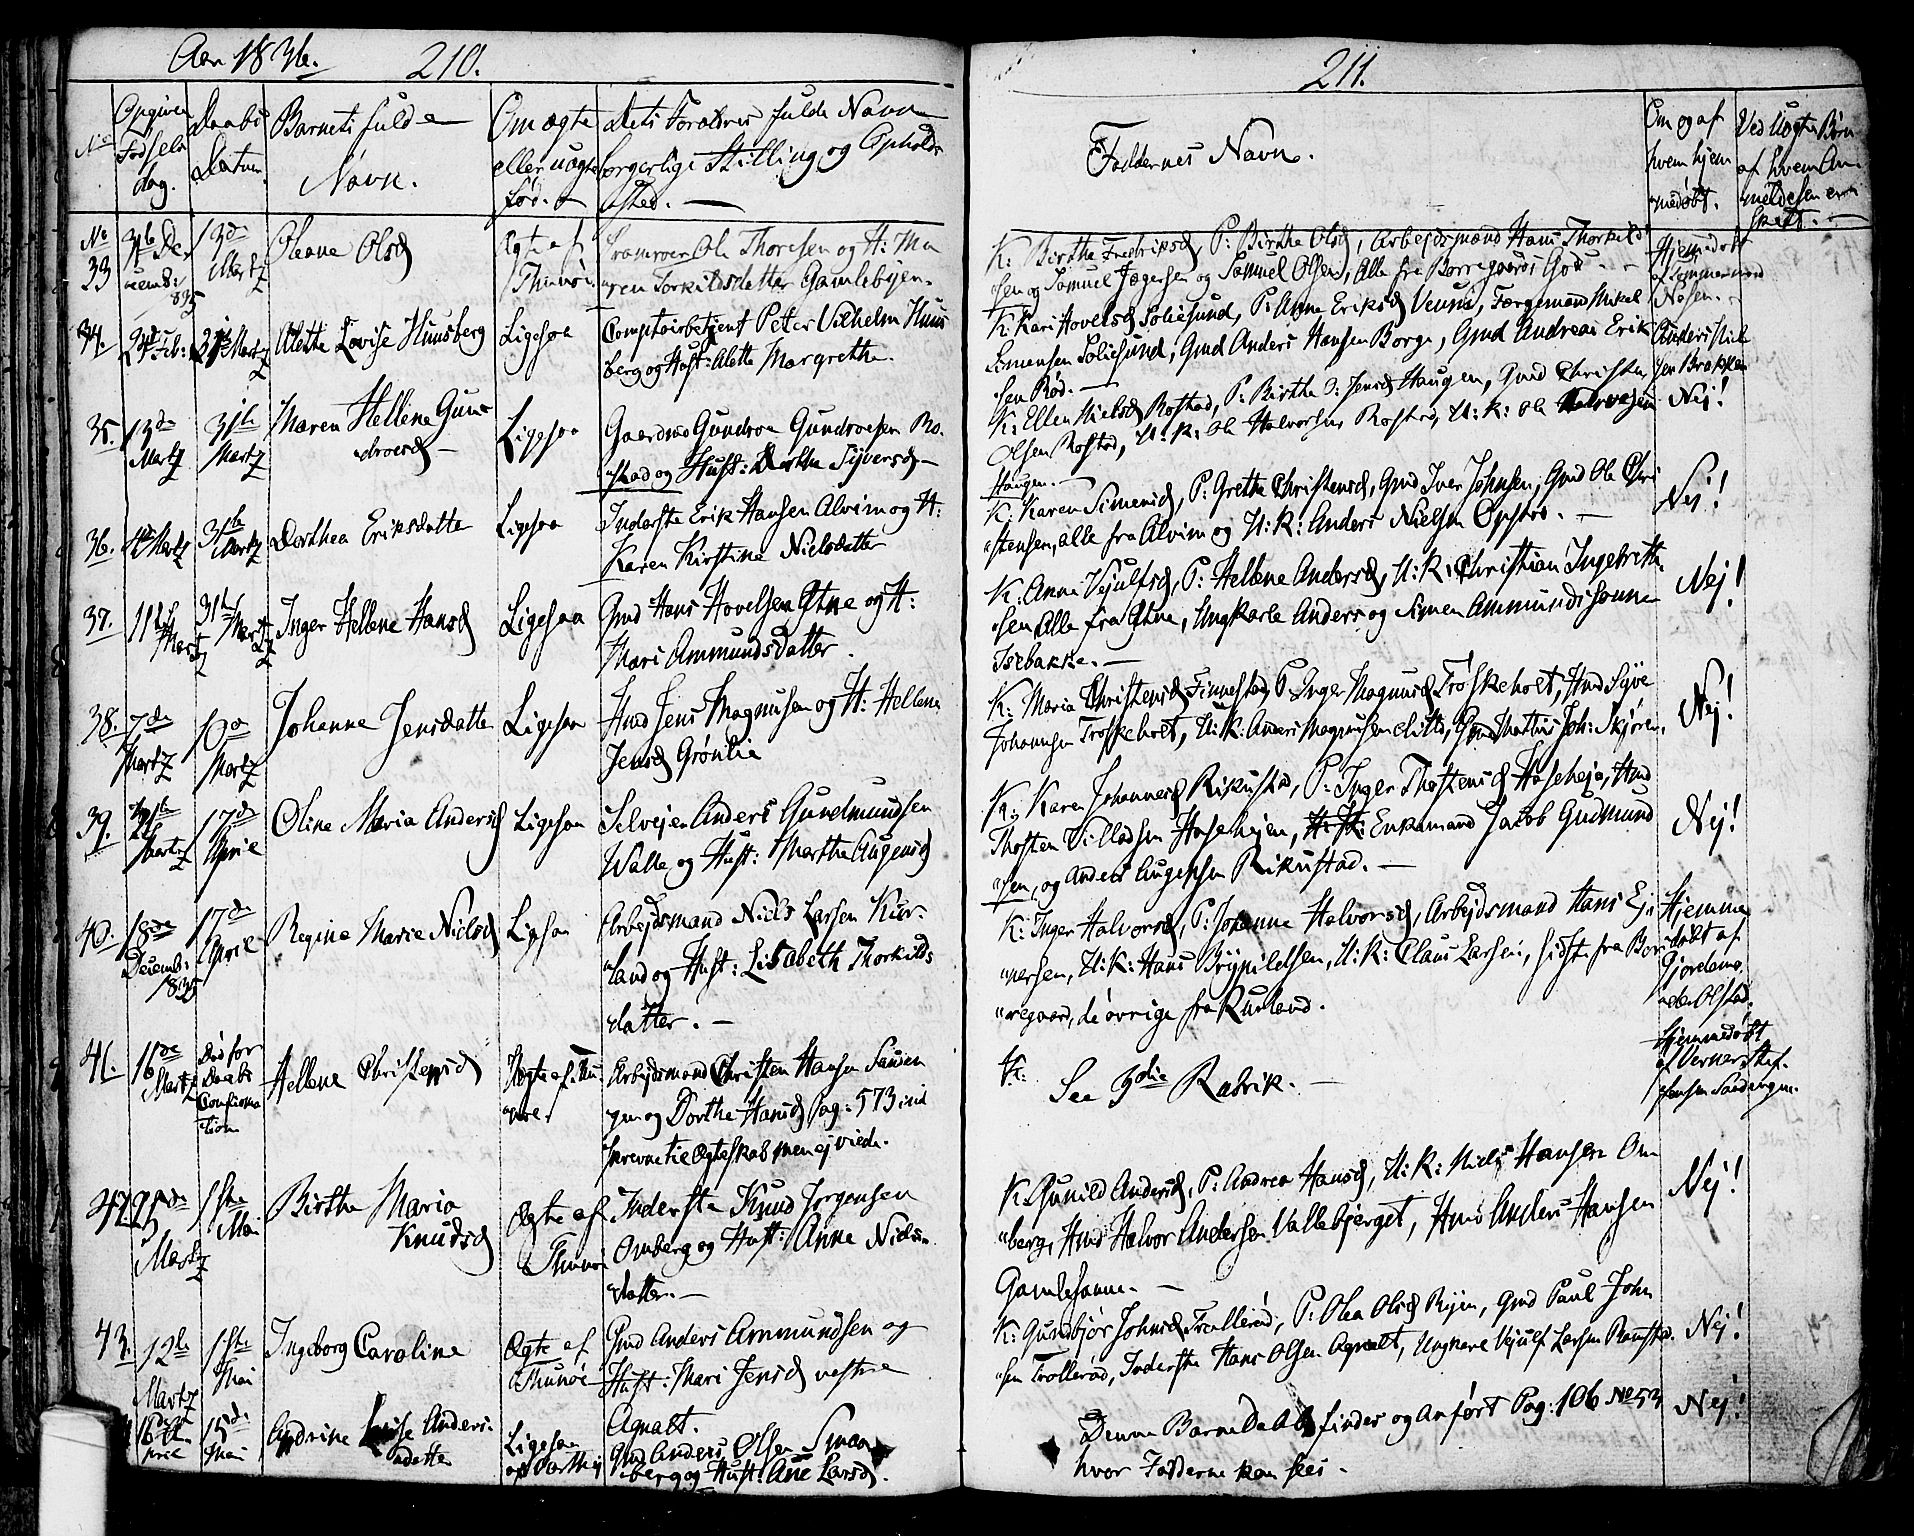 Aar 1836.
210.
No
Opgiven Fødsels dag.
Daabs Datum.
Barnets fulde Navn.
Om ægte eller uægte fød. -
Dets Forældres fulde Navn
borgerlige Stilling og Opholds
sted. -
No 33
Decemb: 1835
13de Martz
Oleane Olsd
Ægte af Thunøe
Ole Thoresen og H: Ma
ren Torkildsdatter Gamlebyen.
34.
24de Feb:
Martz
Alette Lovise Hunsberg
Ligesaa
Comptoirbetjent Peter Vilhelm Huns
berg og Hust: Alette Margrethe.
35.
13de Martz
31te Martz
Maren Hellene Gun
droesd -
Ligesaa
Gaardmd Gundroe Gundroesen Ro-
stad og Hust: Dorthe Syversd -
36.
4de Martz
31te Martz
Dorthea Eriksdatte
Ligesaa
Inderste Erik Hansen Alvim og H:
Karen Kirstine Nielsdatter
37.
11te Martz
31te Martz
Inger Hellene Hansd
Ligesaa
Gmd Hans Hovelsen Ytne og H:
Mari Ammundsdatter.
38.
7de Martz
10de Martz
Johanne Jensdatte
Ligesaa
Hmd Jens Magnusen og H: Hellene
Jensd Grønlie
39.
Martz
17de April
Oline Maria Andersd
Ligesaa
Selvejer Anders Gundmundsen
Walle og Hust: Marthe Augensd
40.
18de Decemb: 1835
17de April
Regine Marie Nielsd
Ligesaa
Arbejdsmand Niels Larsen Kur-
land og Hust: Lisabeth Thorkilds
datter. -
41.
16de Martz
Død før Daabs Confirma tion
Hellene Christensd
Arbejdsmand Christen Hansen Sanden
gen og Dorthe Hansd Pag: 573 ind
skrevne til Ægteskab men ej viede.
42.
25de Martz
1ste Mai
Birthe Maria
Knudsd
Ægte af Thunøe
Inderste Knud Jørgensen
Omberg og Hust: Anne Niels
datter. -
43.
12te Martz
1ste Mai
Ingeborg Caroline
Ægte af Thunøe
Gmd Anders Ammundsen og
Hust: Mari Jensd vestre
Agnalt.
16de April
15de Mai
Andrine Lovise Anders
datte
Ligesaa
Gmd Anders Olsen Smaa
berg og Hust: Ane Larsd.
211.
Faddernes Navn.
Om og af hvem hjem medøbt.
Ved Uægte Børn af hvem An meldelsen er skeet. -
K: Birthe Fredriksd, P: Birthe Olsd, Arbejdsmand Hans Thorkild
sen og Samuel Jægersen og Samuel Olsen, alle fra Borregaards Gods -
Hjemmedøbt af Nosen. -
K: Kari Hovelsd Soliesund, P: Anne Eriksd Veum, Færgemand Mikel
Simensen Soliesund, Gmd Anders Hansen Borge, Gmd Andreas Erik
sen Rød. -
K: Ellen Nielsd Rostad, P: Birthe Jensd Haugen, Gmd Christen
Olsen Rostad, U: K: Ole Halvorsen Rostad, U: K: Ole Halvorsen
Haugen. -
Nej!
K: Karen Simensd, P: Grethe Christensd, Gmd Iver Johnsen, Gmd Ole Chri
stensen, alle fra Alvim og U: K: Anders Nielsen Opstad. -
Nej!
K: Anne Vejulfsd, P: Hellene Andersd, U: K: Christian Ingebreth
sen, Alle fra Ytne, Ungkarle Anders og Simen Ammundssønne
Isebakke. -
Nej!
K: Maria Christensd Finnestad, P: Inger Magnusd Troskeholt, Hmd Syve
Johannsen Troskeholt, U: K: Anders Magnusen ditto, Gmd Mathis Joh: Skjøren.
Nej!
K: Karen Johannesd Rikustad, P: Inger Thostensd Hasehejen, Hmd
Thosten Villadsen Hasehejen, Enkemand Jacob Gudmund
sen, og Anders Augensen Rikustad. -
Nej!
K: Inger Halvorsd, P: Johanne Halvorsd, Arbejdsmand Hans Ej
nersen, U: K: Hans Brynildsen, U: K: Claus Larsen, sidste fra Bor
regaard, de øvrige fra Kurland.
Hjemme døbt af Gjordemo deren Olstad.
K: See 3die Rubrik. -
Hjemmedøbt af Verner Staf-
K: Gunild Andersd, P: Andrea Hansd, U: K: Niels Hansen Om
berg, Hmd Halvor Andersen Vallebjerget, Hmd Anders Hansen
Gamlehaven. -
Nej!
K: Gunbjør Johnsd Trollerød, P: Olea Olsd Ryen, Gmd Paul John
sen Trollerød, Inderste Hans Olsen Agnalt, Ungkarl Vejulf Larsen Ramstad.
Nej!
Denne Barnedaab findes og anført Pag: 106 No 53
hvor Fadderne kan sees -
Nej!